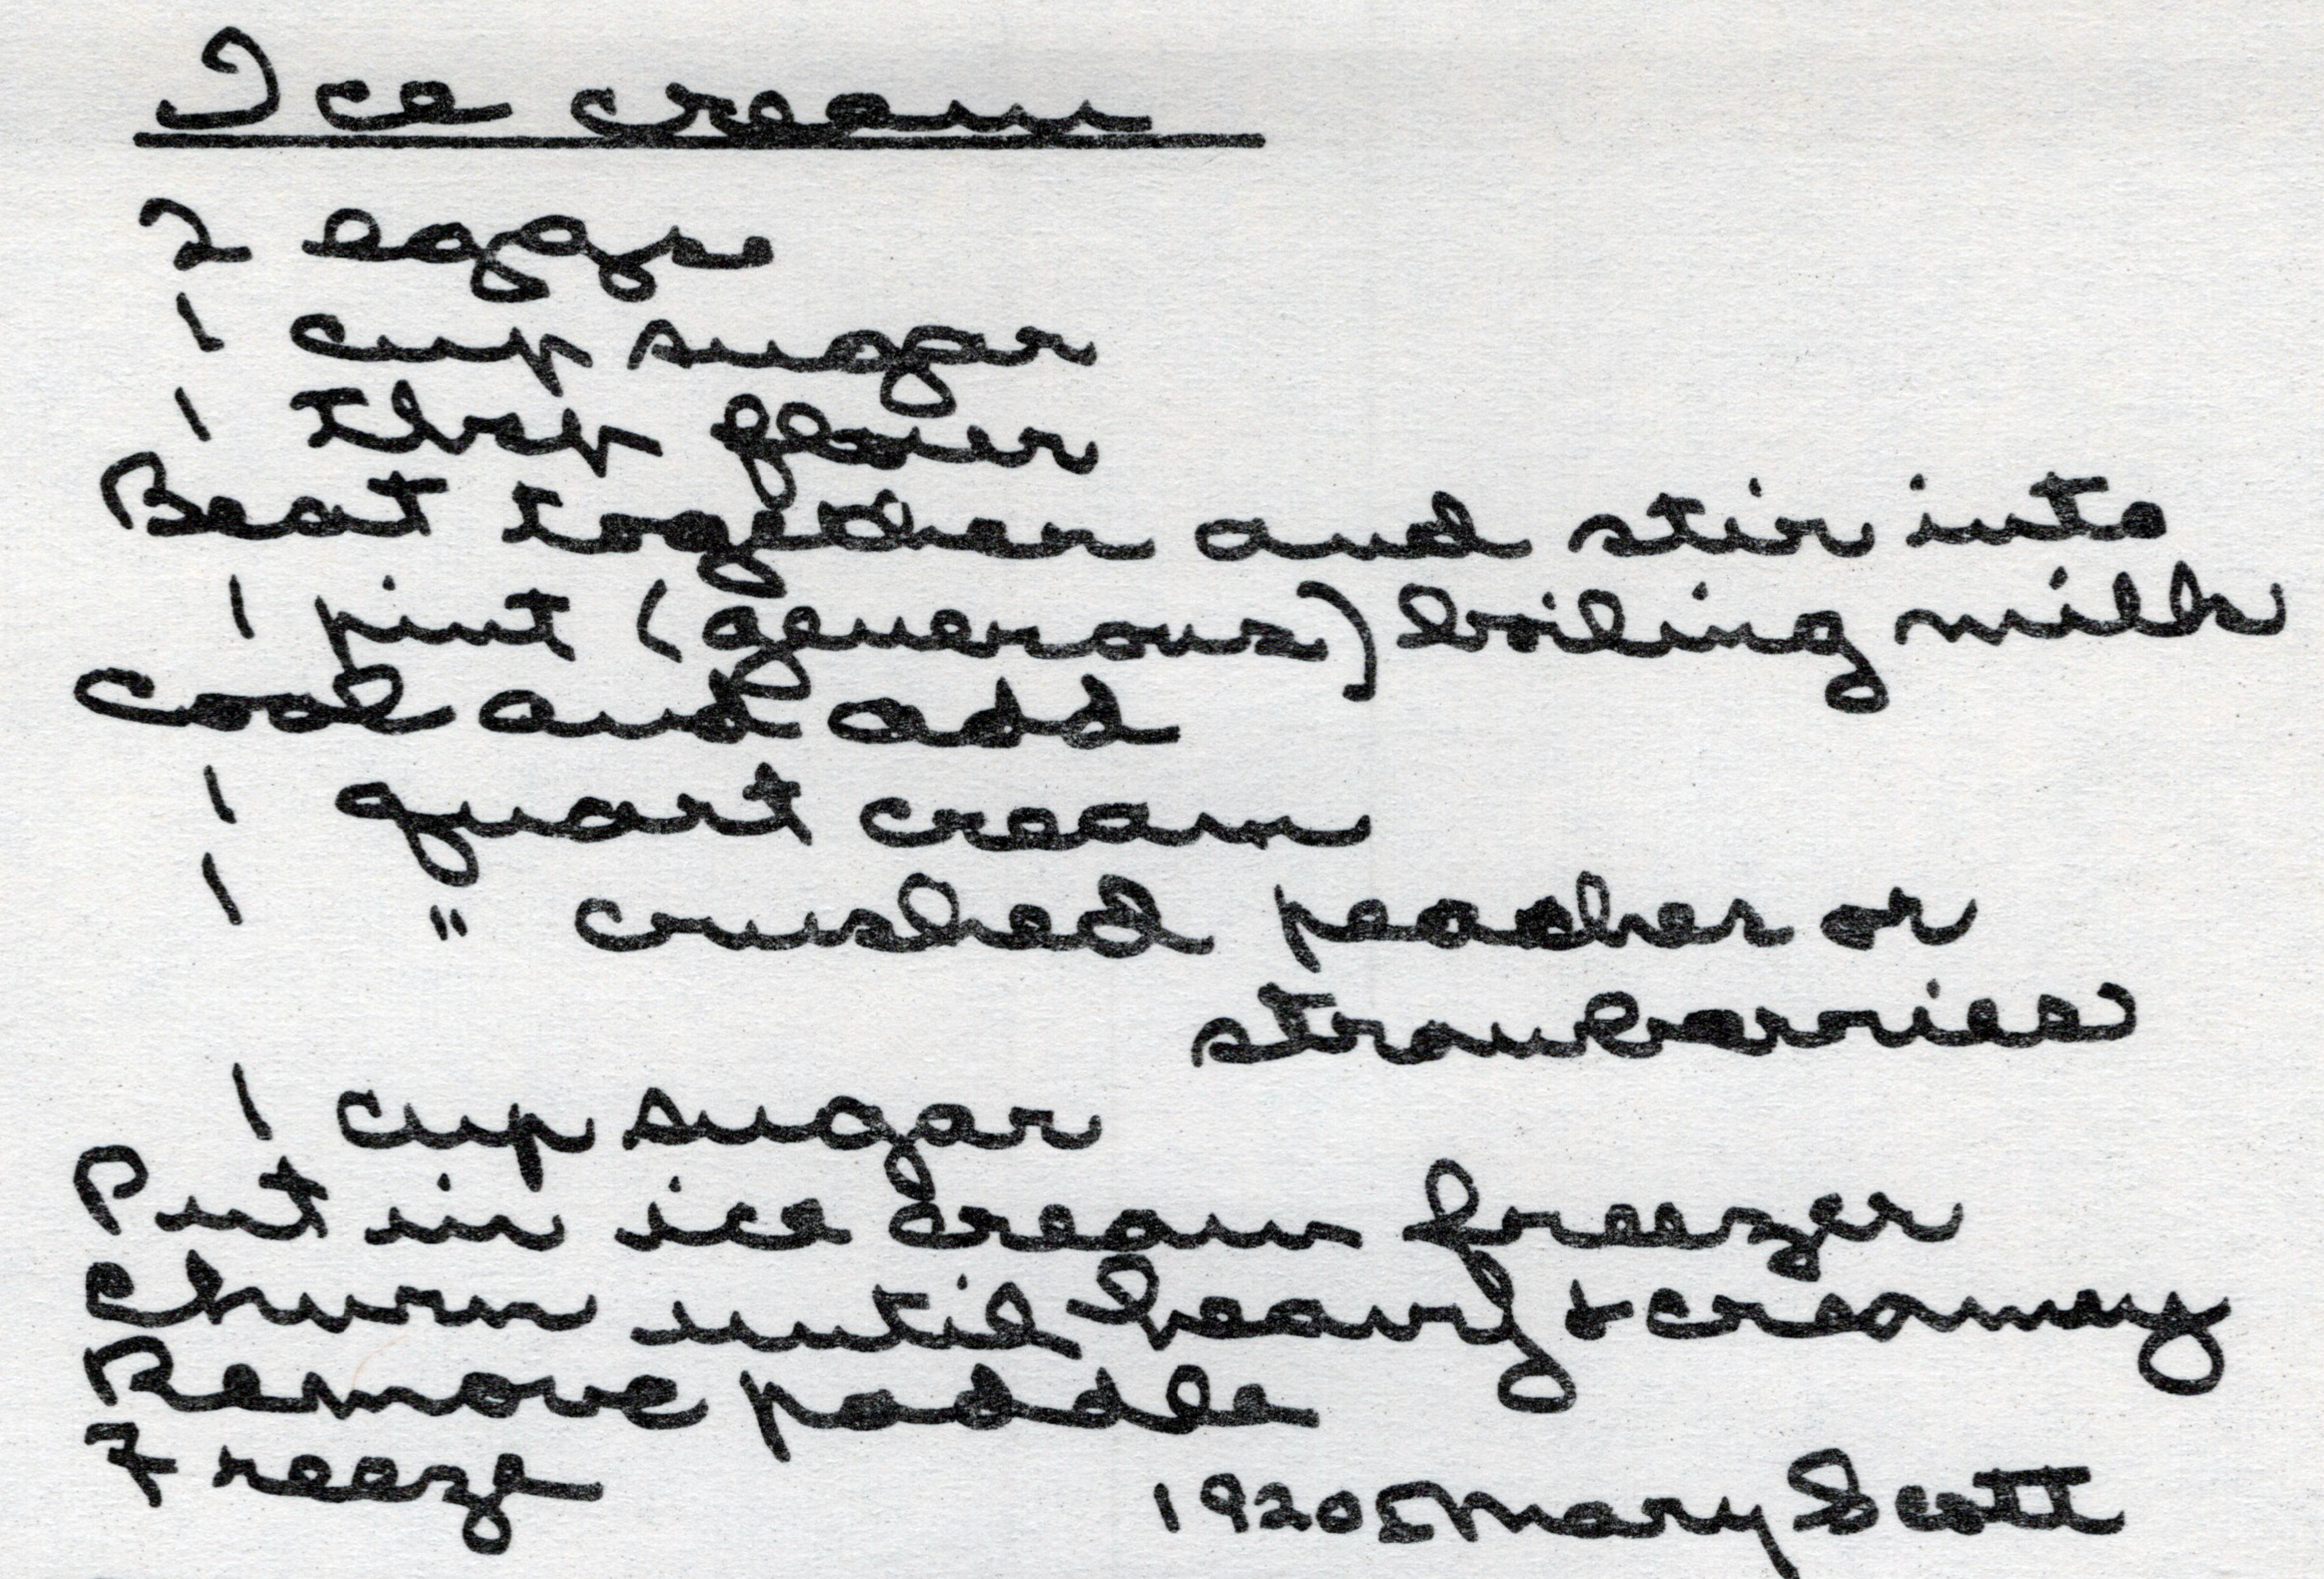 Ice cream
2 eggs
1 cup sugar
1 tbsp flour
Beat together and stir into
1 pint (generous) boiling milk
Cool and add
1 quart cream
1 " crushed peaches or
strawberries
1 cup sugar
Put in ice cream freezer
Churn until heavy + creamy
Remove paddle
Freeze
1920s Mary Scott